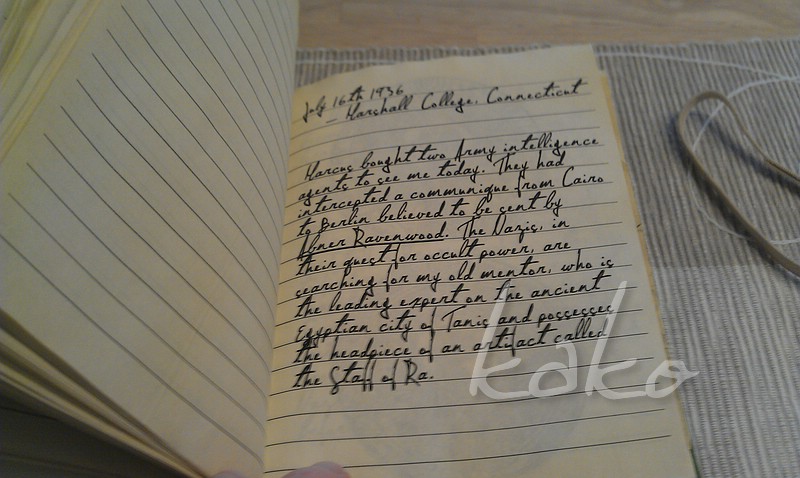 July 16th 1936
– Marshall College, Connecticut
Marcus bought two Army intelligence
agents to see me today. They had
intercepted a communique from Cairo
to Berlin believed to be sent by
Abner Ravenwood. The Nazis, in
their quest for occult power, are
searching for my old mentor, who is
the leading expert on the ancient
Egyptian city of Tanis and possesses
the headpiece of an artifact called
the Staff of Ra.
kako